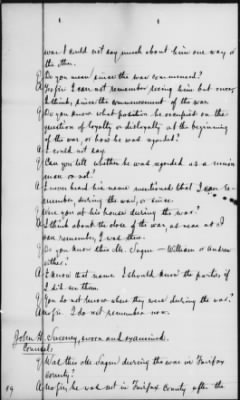 war I could not say much about him one way or
the other.
Q Do you mean since the war commenced?
A Yes sir I can not remember seeing him but once,
I think, since the commencement of the war.
Q Do you know what position he occupied on the
question of loyalty or disloyalty at the beginning
of the war, or how he was regarded?
A I could not say.
Q Can you tell whether he was regarded as a union
man or not?
A I never heard his name mentioned that I can re-
member, during the war, or since.
Q Were you at his house during the war?
A I think about the close of the war, as near as I
can remember, I was there.
Q Do you know this Mr. Sagen — William or Andrew
either?
A I know that name. I should know the parties if
I did see them.
Q You do not know where they were during the war?
A No sir I do not remember now.
John H. Sweeney, sworn and examined.
Counsel:
Q Was this Mr Sagen during the war in Fairfax
County?
A No sir, he was not in Fairfax County after the
19